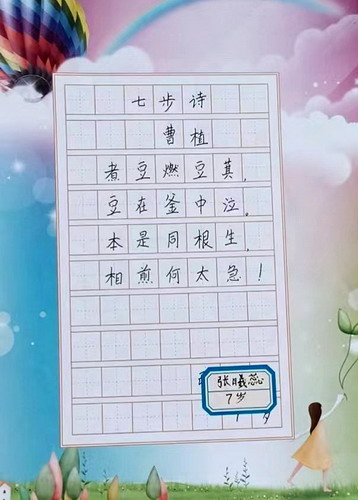 七步诗
曹植
煮豆燃豆萁,
豆在釜中泣。
本是同根生,
相煎何太急!
张曦蕊
7岁